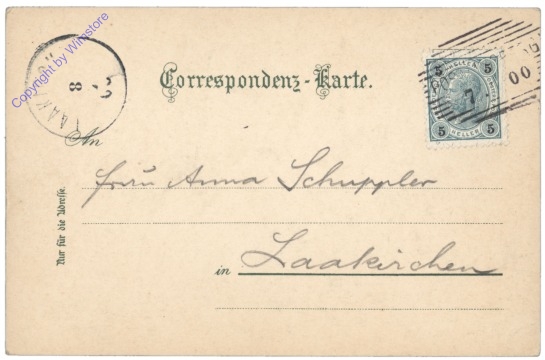 Copyright by Winistore
8
Correspondenz-Karte.
5 5
00
5 HELLER 5
An
Frau Anna Schuppler
Nur für die Adresse.
in Laakirchen